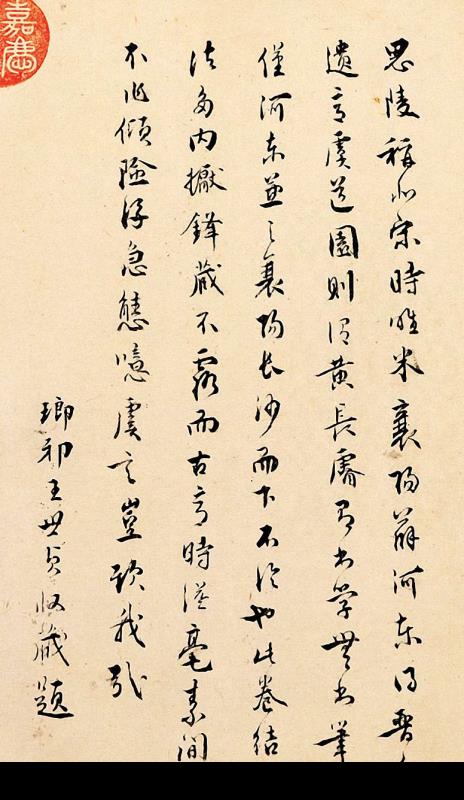 思陵稱北宋時唯米襄陽薛河東得晉人
遺意虞道園則謂黃長睿有書學無書筆
僅河東並之襄陽長沙而下不論也此卷結
法多內擫鋒藏不露而古意時溢毫素間
不作傾險浮急態噫虞言豈欺我哉
瑯邪王世貞收藏題
嘉雋